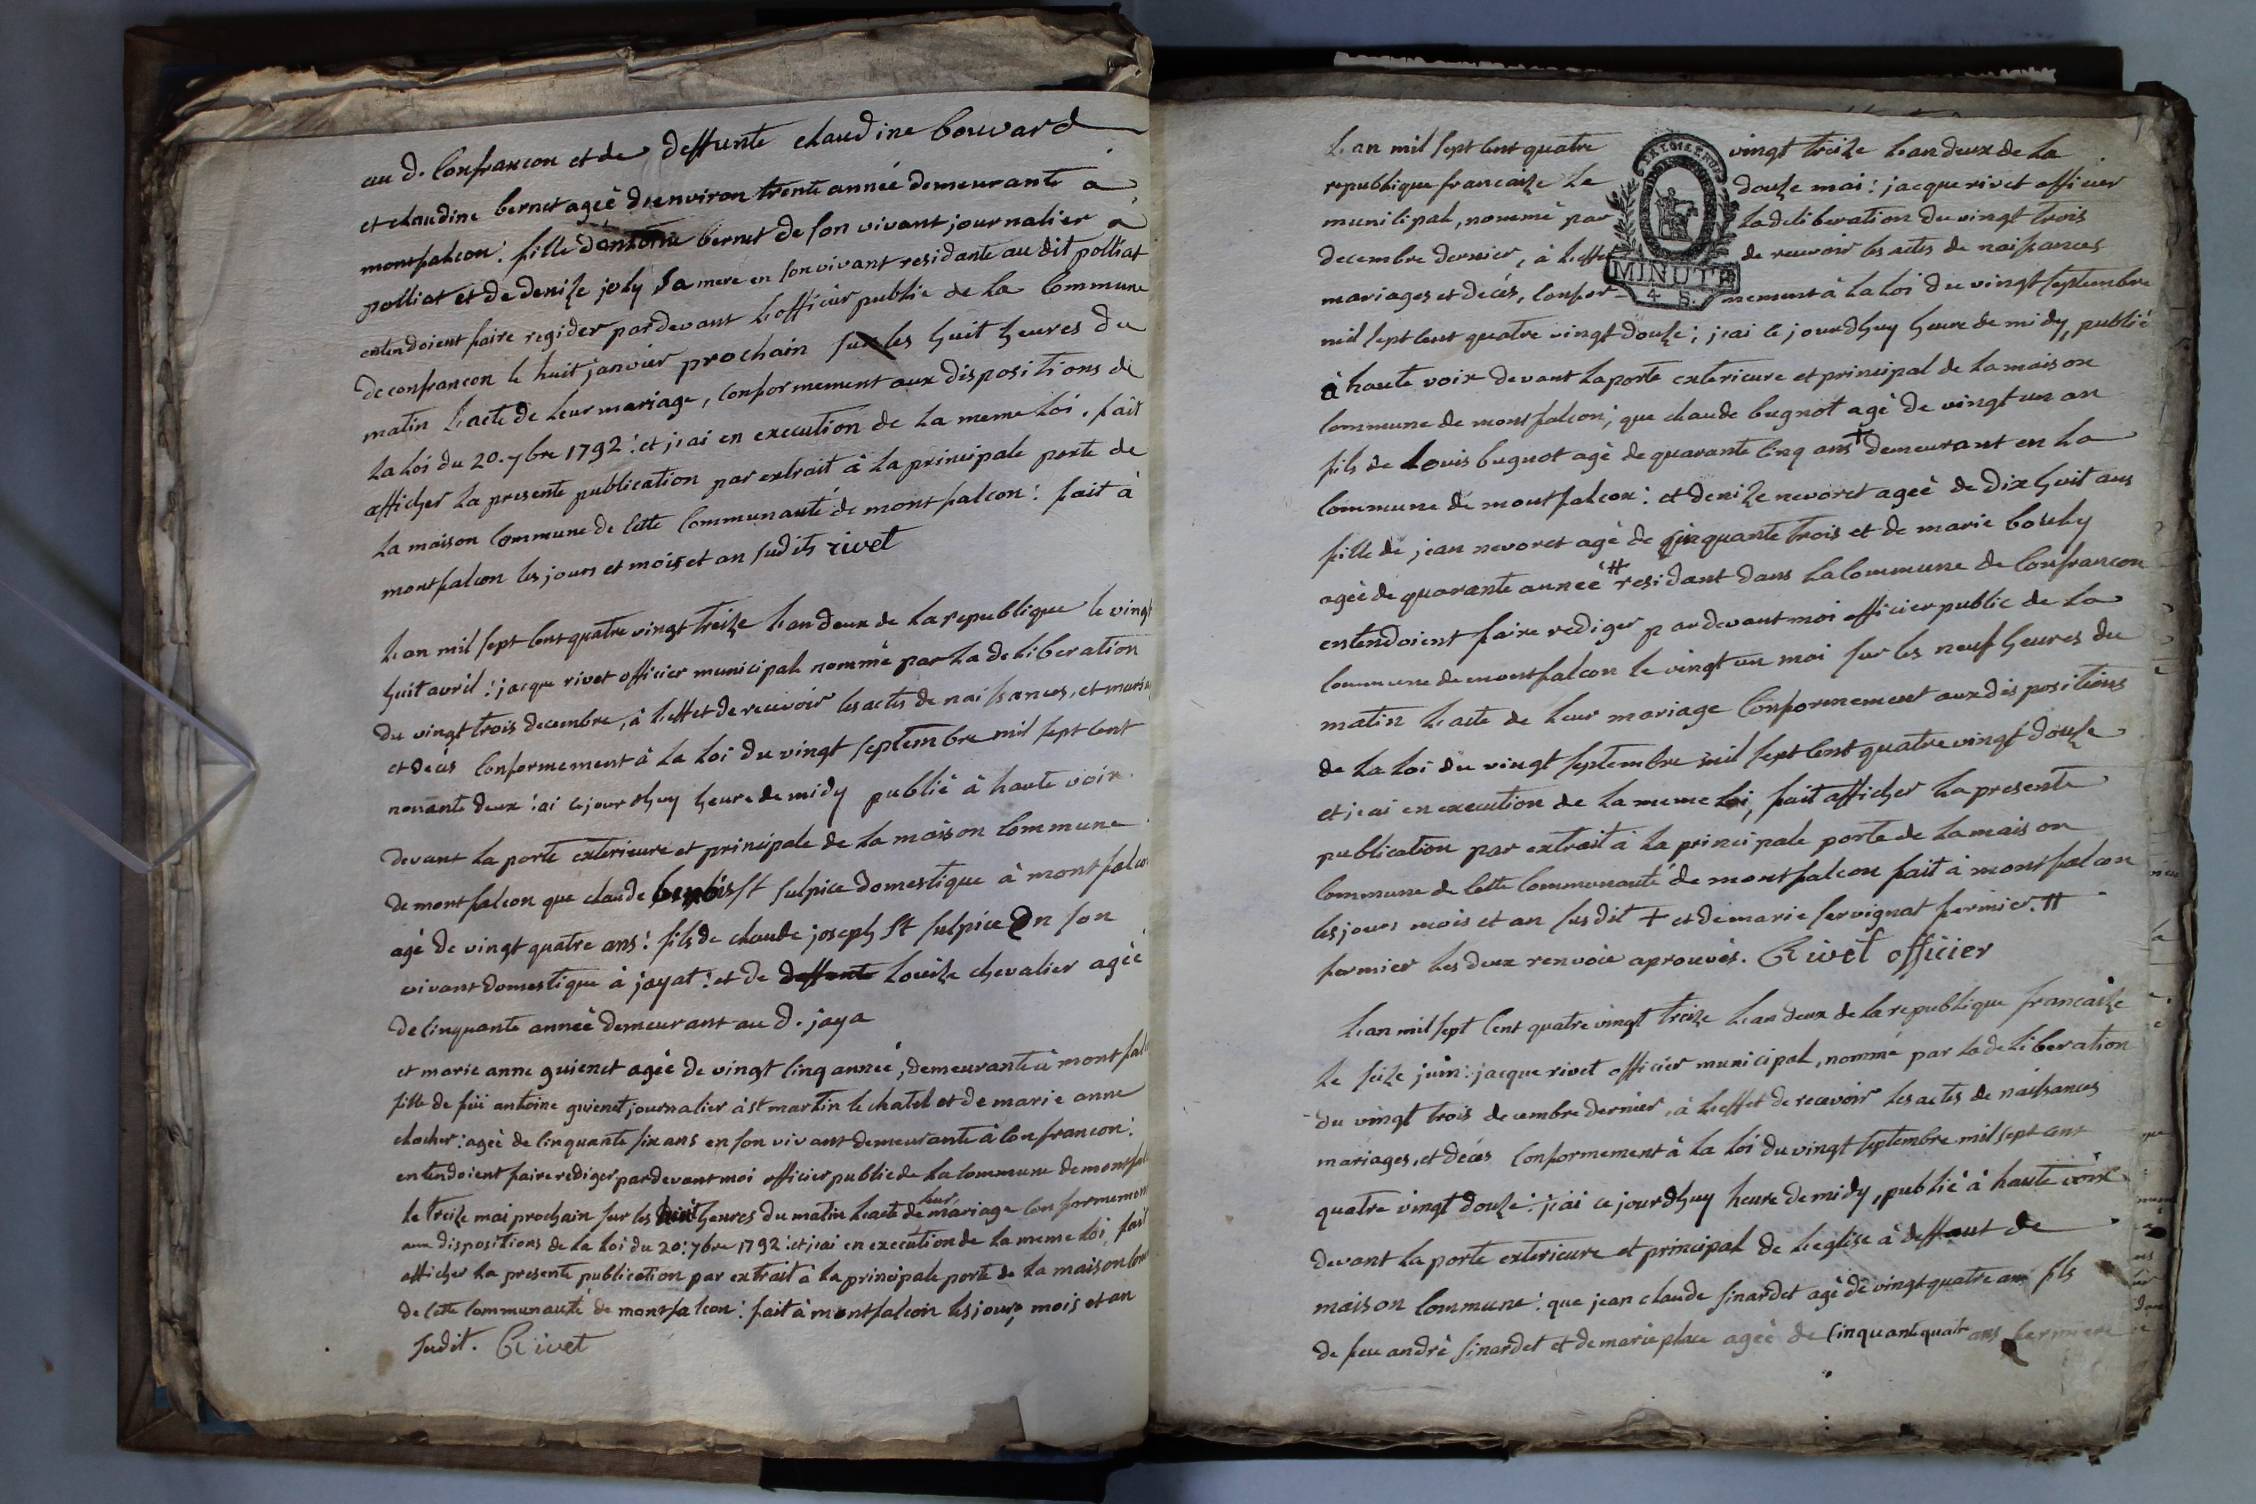 au d. Confrancon et de deffunte claudine bouvard
et claudine bernet ageè d'environ trente anneè demeurante à
montfalcon: fille d'antoine bernet de son vivant journalier à
polliat et de denize joly sa mere en son vivant residante au dit polliat
entendoient faire regider pardevant l'officier public de la Commune
de confrancon le huit janvier prochain sur les huit heures du
matin l'acte de leur mariage, conformement aux dispositions de
la loi du 20. 7bre 1792: et j'ai en execution de la meme loi. fait
afficher la presente publication par extrait à la principale porte de
la maison Commune de cette Communauté de montfalcon: fait à
montfalcon les jours et mois et an sudits rivet
L'an mil sept cent quatre vingt treize l'an deux de la republique le vingt
huit avril: jacque rivet officier municipal nommé par la deliberation
du vingt trois decembre, à l'effet de recevoir les actes de naissances, et
et décès Conformement à la loi du vingt septembre mil sept cent
nonante deux: ai ce jourdhuy heure de midy publié à haute voix
devant la porte exterieure et principale de la maison Commune
de montfalcon que claude St sulpice domestique à montfalcon
agé de vingt quatre ans: fils de claude joseph St sulpice en son
vivant domestique à jayat: et de deffunte louize chevalier ageè
de cinquante anneè demeurant au d. jaya
et marie anne guienet ageè de vingt cinq anneè, demeurante à montfal
fille de feü antoine guienet journalier à st martin le chatel et de marie anne
clocher: ageè de cinquante six ans en son vivant demeurante à Confrancon:
entendoient faire rediger pardevant moi officier public de la commune de montfal
le treize mai prochain sur les huit heures du matin l'acte de leur mariage conformement
aux dispositions de la loi du 20: 7bre 1792: et j'ai en execution de la meme loi, fait
afficher la presente publication par extrait à la principale porte de la maison com
de cette Communauté de montfalcon: fait à montfalcon les jours, mois et an
sudit. Rivet
L'an mil sept cent quatre vingt treize l'an deux de la
republique francaize le douze mai: jacque rivet officier
municipal, nommé par la deliberation du vingt trois
decembre dernier, à l'effet de recevoir les actes de naissances
mariages et décès, confor- mement à la loi du vingt septembre
MINUTE
4 S.
mil sept cent quatre vingt douze; j'ai ce jourdhuy heure de midy, publié
à haute voix devant la porte exterieure et principal de la maison
Commune de montfalcon; que claude bugnot agè de vingt un an
fils de Louis bugnot agè de quarante cinq ans + demeurant en la
Commune de montfalcon: et denize nevoret ageè de dix huit ans
fille de jean nevoret agè de cinquante trois et de marie
ageè de quarante anneè # residant dans la Commune de Confrancon
entendoient faire rediger pardevant moi officier public de la
Commune de montfalcon le vingt un mai sur les neuf heures du
matin l'acte de leur mariage Conformement aux dispositions
de la loi du vingt septembre mil sept cent quatre vingt douze
et j'ai en execution de la meme loi, fait afficher la presente
publication par extrait à la principale porte de la maison
Commune de cette Communauté de montfalcon fait à montfalcon
les jours mois et an susdit + et de marie servignat fermier. #
fermier les deux renvoie aprouvés. Rivet officier
L'an mil sept Cent quatre vingt treize l'an deux de la republique francaize
le seize juin: jacque rivet officier municipal, nommé par la deliberation
du vingt trois decembre dernier, à l'effet de recevoir les actes de naissances
mariages, et décès Conformement à la loi du vingt septembre mil sept cent
quatre vingt douze: j'ai ce jourdhuy heure de midy, publié à haute voix
devant la porte exterieure et principal de l'eglise à deffaut de
maison Commune: que jean claude sinardet agè de vingt quatre ans fils
de feu andrè sinardet et de marie place ageè de Cinquante quatr ans fermiere